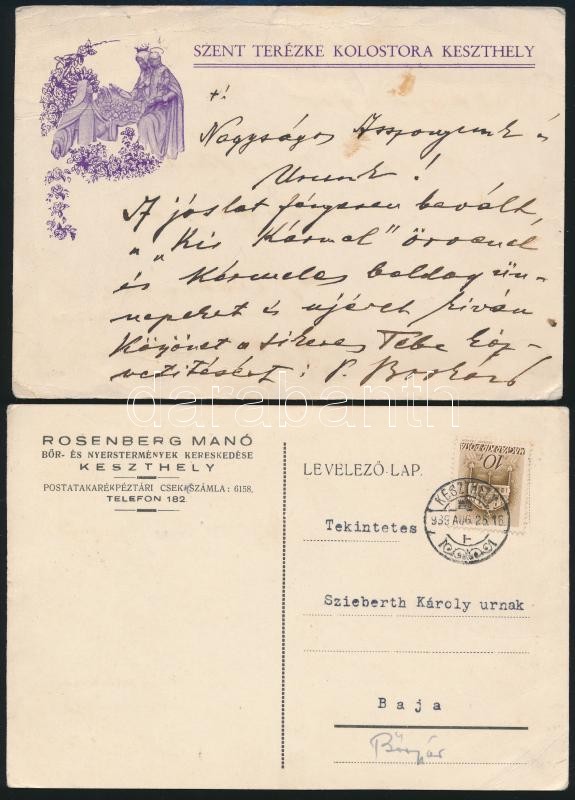 SZENT TERÉZKE KOLOSTORA KESZTHELY
Nagyságos Asszonyunk és
Urunk!
A jóslat fényesen bevált,
„Kis Kármel” örvend
és Kármeles boldog ün-
nepeket és újévet kíván
Köszönet a sikeres
: P.
darabanth
ROSENBERG MANÓ
BŐR- ÉS NYERSTERMÉNYEK KERESKEDÉSE
KESZTHELY
POSTATAKARÉKPÉZTÁRI CSEKKSZÁMLA: 6158.
TELEFON 182.
LEVELEZŐ-LAP.
10
KESZTHELY
939 AUG. 25. 16
Tekintetes
Szieberth Károly urnak
Baja
Bőrgyár